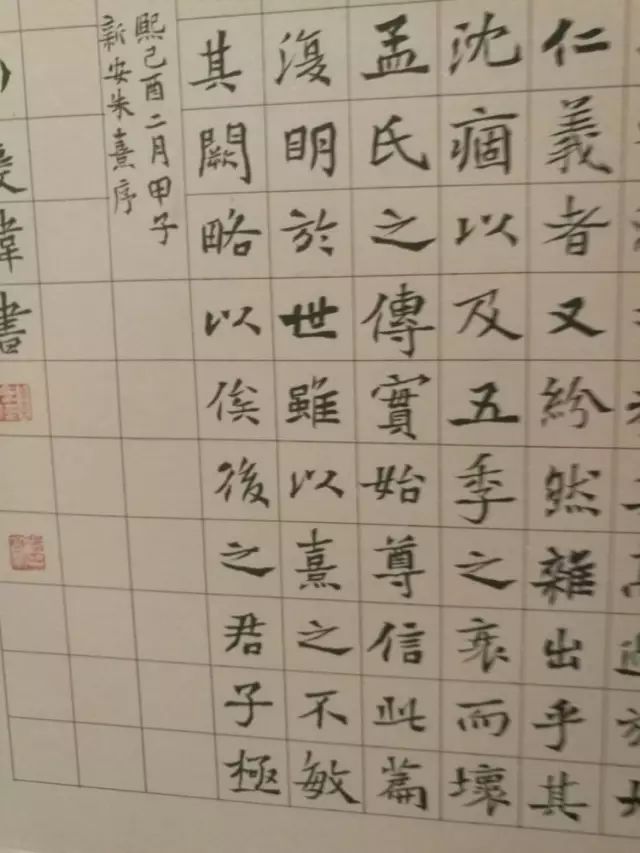 仁義者又紛然雜出乎其
沈痼以及五季之衰而壞
孟氏之傳實始尊信此篇
復明於世雖以熹之不敏
其闕略以俟後之君子極
熙己酉二月甲子
新安朱熹序
書